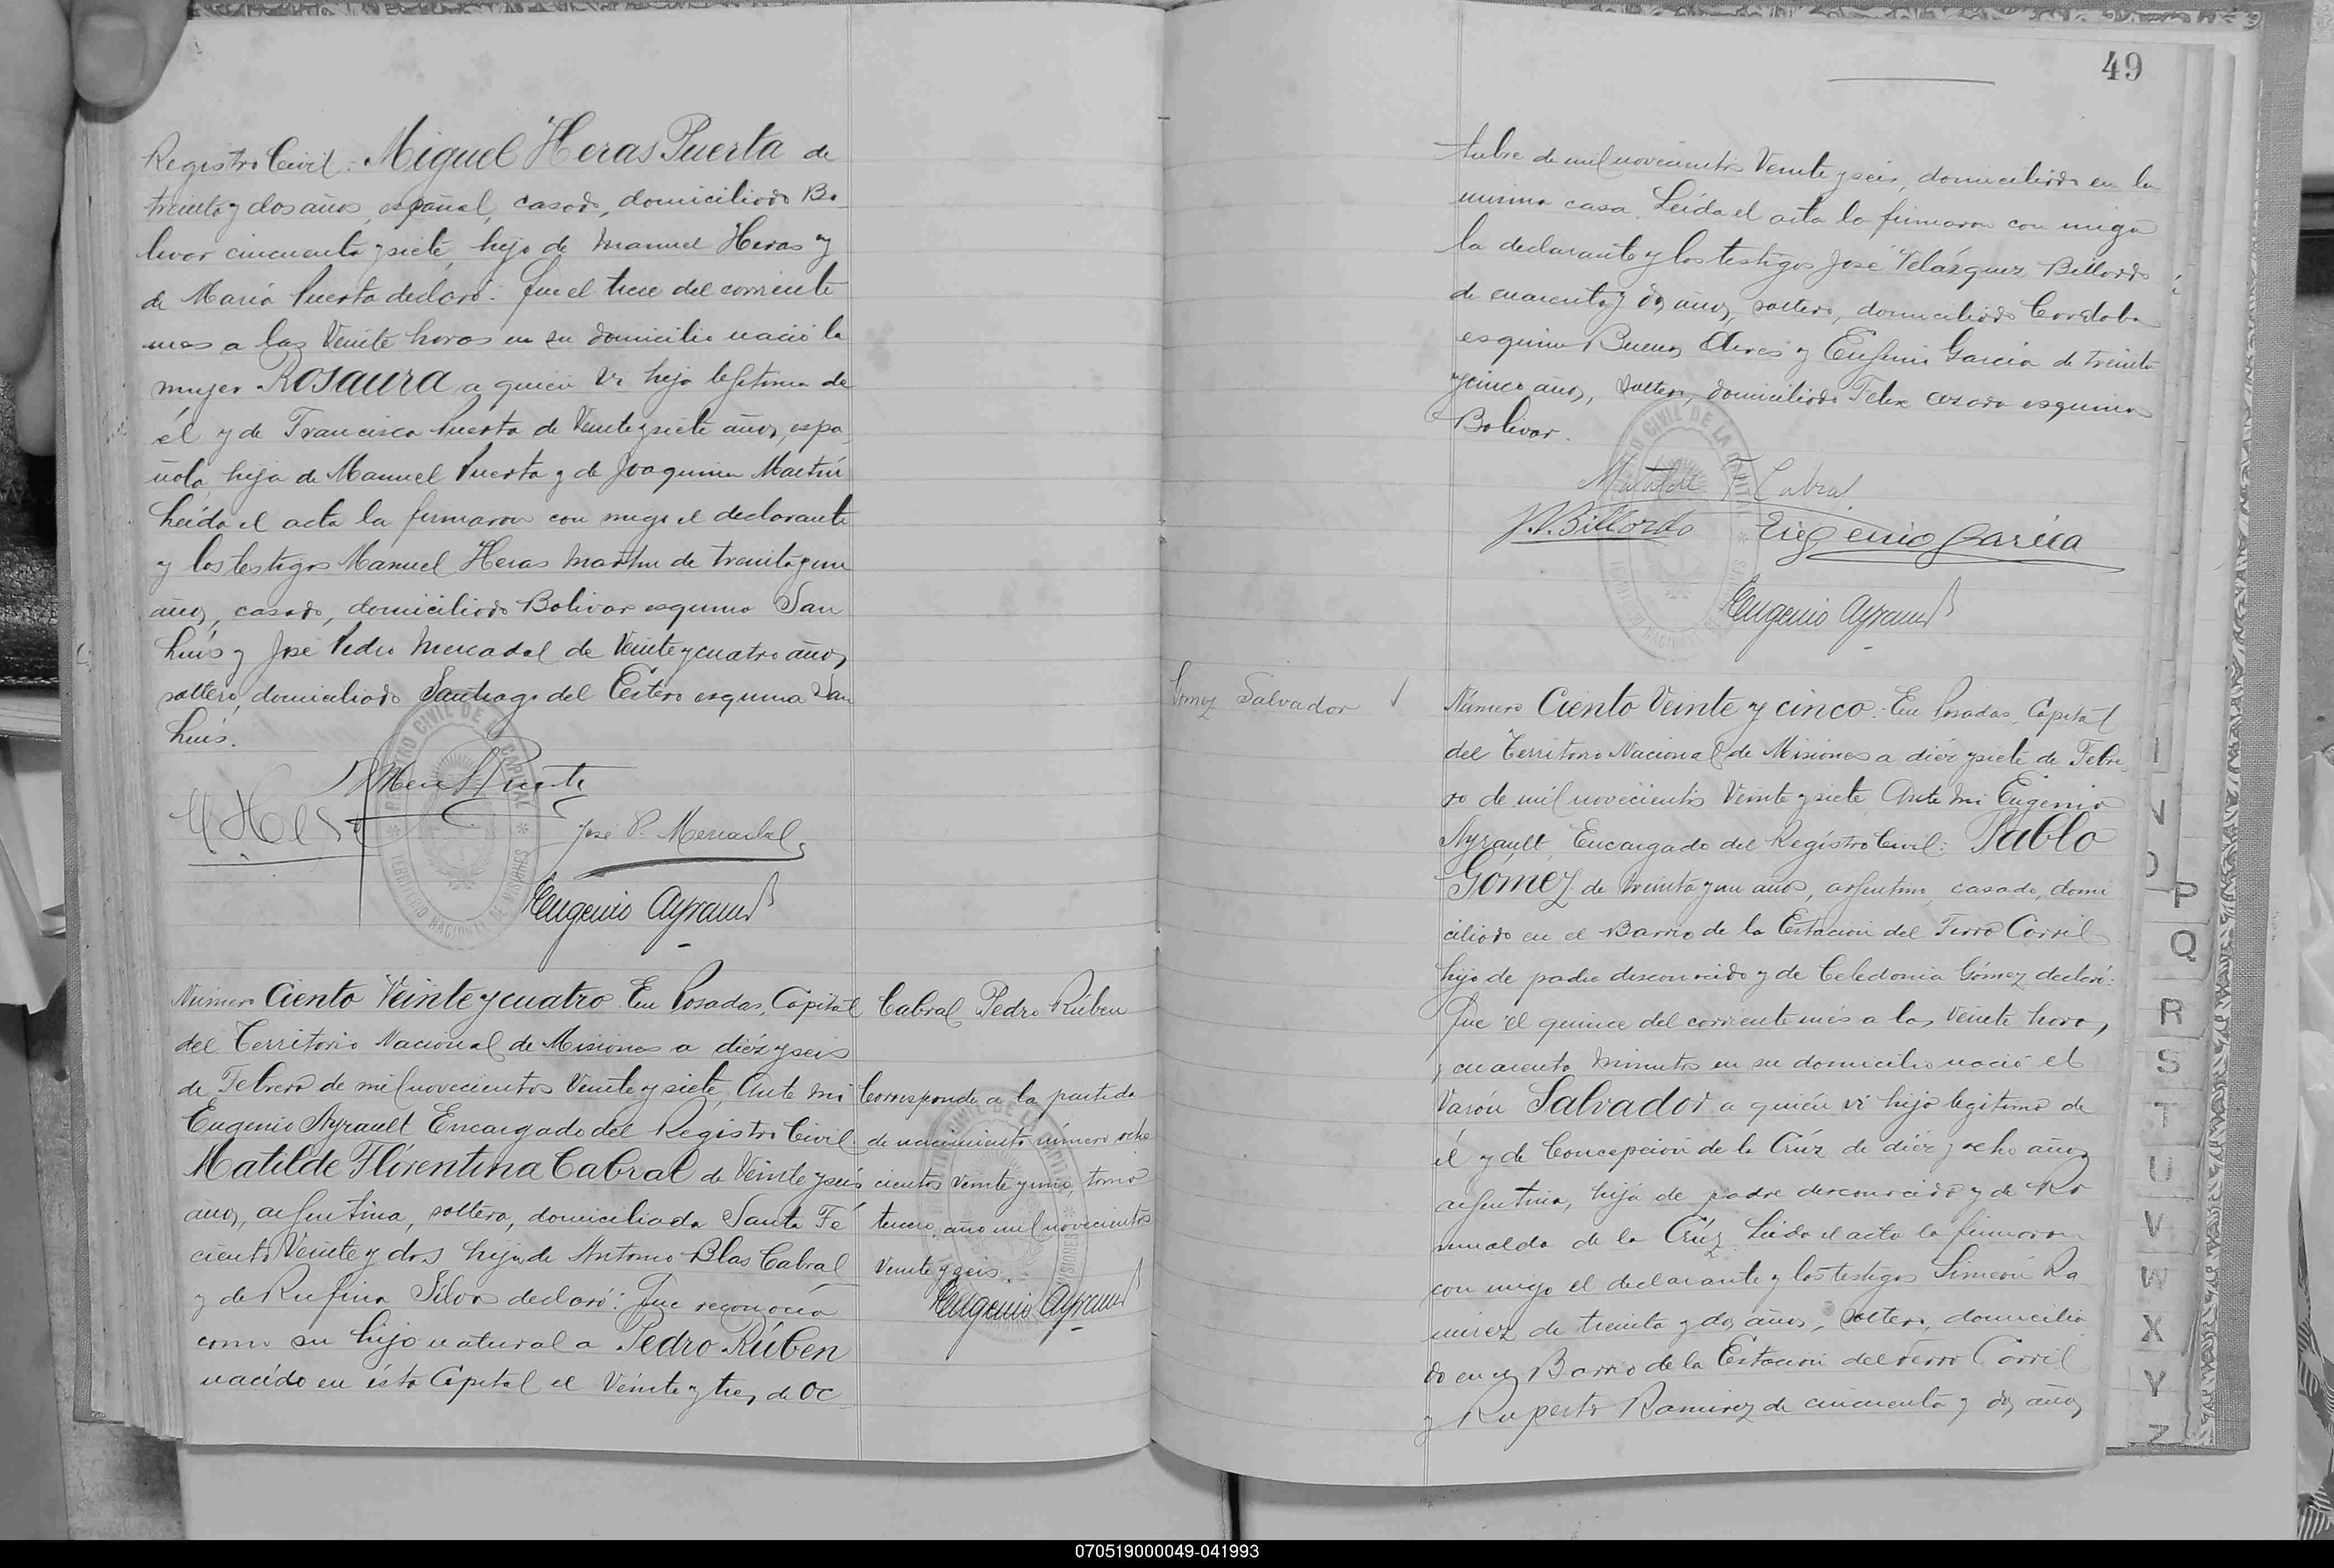 Registro Civil: Miguel Heras Puerta de
treinta y dos años, español, casado, domiciliado Bo-
livar cincuenta y siete, hijo de Manuel Heras y
de María Puerta declaró: Que el trece del corriente
mes a las Veinte horas en su domicilio nació la
mujer Rosaura a quien vi hija legítima de
él y de Francisca Puerta de Veinte y siete años, espa-
ñola, hija de Manuel Puerta y de Joaquina Martín
Leída el acta la firmaron con migo el declarante
y los testigos Manuel Heras Martín de treinta y un
años, casado, domiciliado Bolivar esquina San
Luís y José Pedro Mercadal de Veinte y cuatro años,
soltero, domiciliado Santiago del Estero esquina San
Luís.
José P. Mercadal
Eugenio Ayrault
REGISTRO CIVIL DE LA CAPITAL
TERRITORIO NACIONAL DE MISIONES
Número Ciento Veinte y cuatro. En Posadas, Capital
del Territorio Nacional de Misiones a diéz y seis
de Febrero de mil novecientos Veinte y siete, Ante mi
Eugenio Ayrault Encargado del Registro Civil:
Matilde Florentina Cabral de Veinte y seis
años, argentina, soltera, domiciliada Santa Fé
ciento Veinte y dos hija de Antonio Blas Cabral
y de Rufina Silva declaró: Que reconocía
como su hijo natural a Pedro Rúben
nacido en ésta Capital el Veinte y tres de Oc-
Cabral Pedro Rúben
Corresponde a la partida
de nacimiento número ocho
cientos veinte y uno, tomo
tercero, año mil novecientos
Veinte y seis.
Eugenio Ayrault
49
tubre de mil novecientos Veinte y seis, domiciliado en la
misma casa. Leída el acta la firmaron con migo
la declarante y los testigos José Velázquez Billordo
de cuarenta y dos años, soltero, domiciliado Cordoba
esquina Buenos Aires y Eugenio García de treinta
y cinco años, soltero, domiciliado Felix Azara esquina
Bolivar.
Matilde F. Cabral
J.V. Billordo Eugenio Garcia
Eugenio Ayrault
Gomez Salvador
Número Ciento Veinte y cinco: En Posadas, Capital
del Territorio Nacional de Misiones a diéz y siete de Febre-
ro de mil novecientos Veinte y siete, Ante mi Eugenio
Ayrault, Encargado del Registro Civil: Pablo
Gómez de treinta y un años, argentino, casado, domi
ciliado en el Barrio de la Estación del Ferro Carril
hijo de padre desconocido y de Celedonia Gómez declaró:
Que el quince del corriente mes a las Veinte horas,
y cuarenta minutos en su domicilio nació el
Varón Salvador a quién vi hijo legítimo de
él y de Concepción de la Crúz de diéz y ocho años
argentina, hija de padre desconocido y de Ro
mualda de la Crúz. Leída el acta la firmaron
con migo el declarante y los testigos Simeón Ra-
mirez de treinta y dos años, soltero, domicilia
do en el Barrio de la Estación del Ferro Carril
y Ruperto Ramirez de cincuenta y dos años,
P
Q
R
S
T
U
V
W
X
Y
Z
070519000049-041993